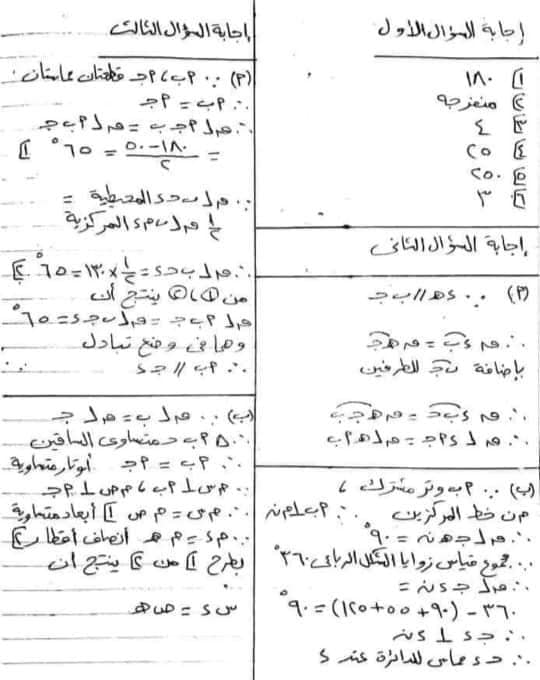 إجابة السؤال الأول
١] ١٨٠
٢] منفرجه
٣] ٤
٤] ٢٥
٥] ٢٥٠
٦] ٣
إجابة السؤال الثانى
(٢) ∵ ء هـ // ب جـ
∴ ق ء ب = ق هـ جـ
بإضافة ب جـ للطرفين
∴ ق ء ب جـ = ق هـ جـ ب
∴ ق ∠ ء ٢ جـ = ق ∠ هـ ٢ ب
(ب) ∵ ٢ ب وتر مشترك ،
م ن خط المركزين ∴ ٢ ب ⊥ م ن
∴ ق ∠ جـ هـ ن = ٩٠°
∵ مجموع قياس زوايا الشكل الرباعى ٣٦٠°
∴ ق ∠ جـ ء ن =
٣٦٠ - (٩٠ + ٥٥ + ١٢٥) = ٩٠°
∴ جـ ء ⊥ ء ن
∴ جـ ء مماس للدائرة عند ء
إجابة السؤال الثالث
(٢) ∵ ٢ ب ، ٢ جـ قطعتان مماستان :
∴ ٢ ب = ٢ جـ
∴ ق ∠ ٢ جـ ب = ق ∠ ٢ ب جـ
= ١٨٠ - ٥٠ / ٢ = ٦٥° ١]
∵ ق ∠ ب جـ ء المحيطية =
١/٢ ق ∠ ب م ء المركزية
∴ ق ∠ ب جـ ء = ١/٢ × ١٣٠ = ٦٥° ٢]
من ① ، ② ينتج أن
ق ∠ ٢ ب جـ = ق ∠ ب جـ ء = ٦٥°
وهما فى وضع تبادل
∴ ٢ ب // جـ ء
(ب) ∵ ق ∠ ب = ق ∠ جـ
∴ Δ ٢ ب جـ متساوى الساقين
∴ ٢ ب = ٢ جـ أوتار متساوية
∵ م س ⊥ ٢ ب ، م ص ⊥ ٢ جـ
∴ م س = م ص ١] أبعاد متساوية
∵ م ء = م هـ أنصاف أقطار ٢]
بطرح ١] من ٢] ينتج أن
س ء = ص هـ